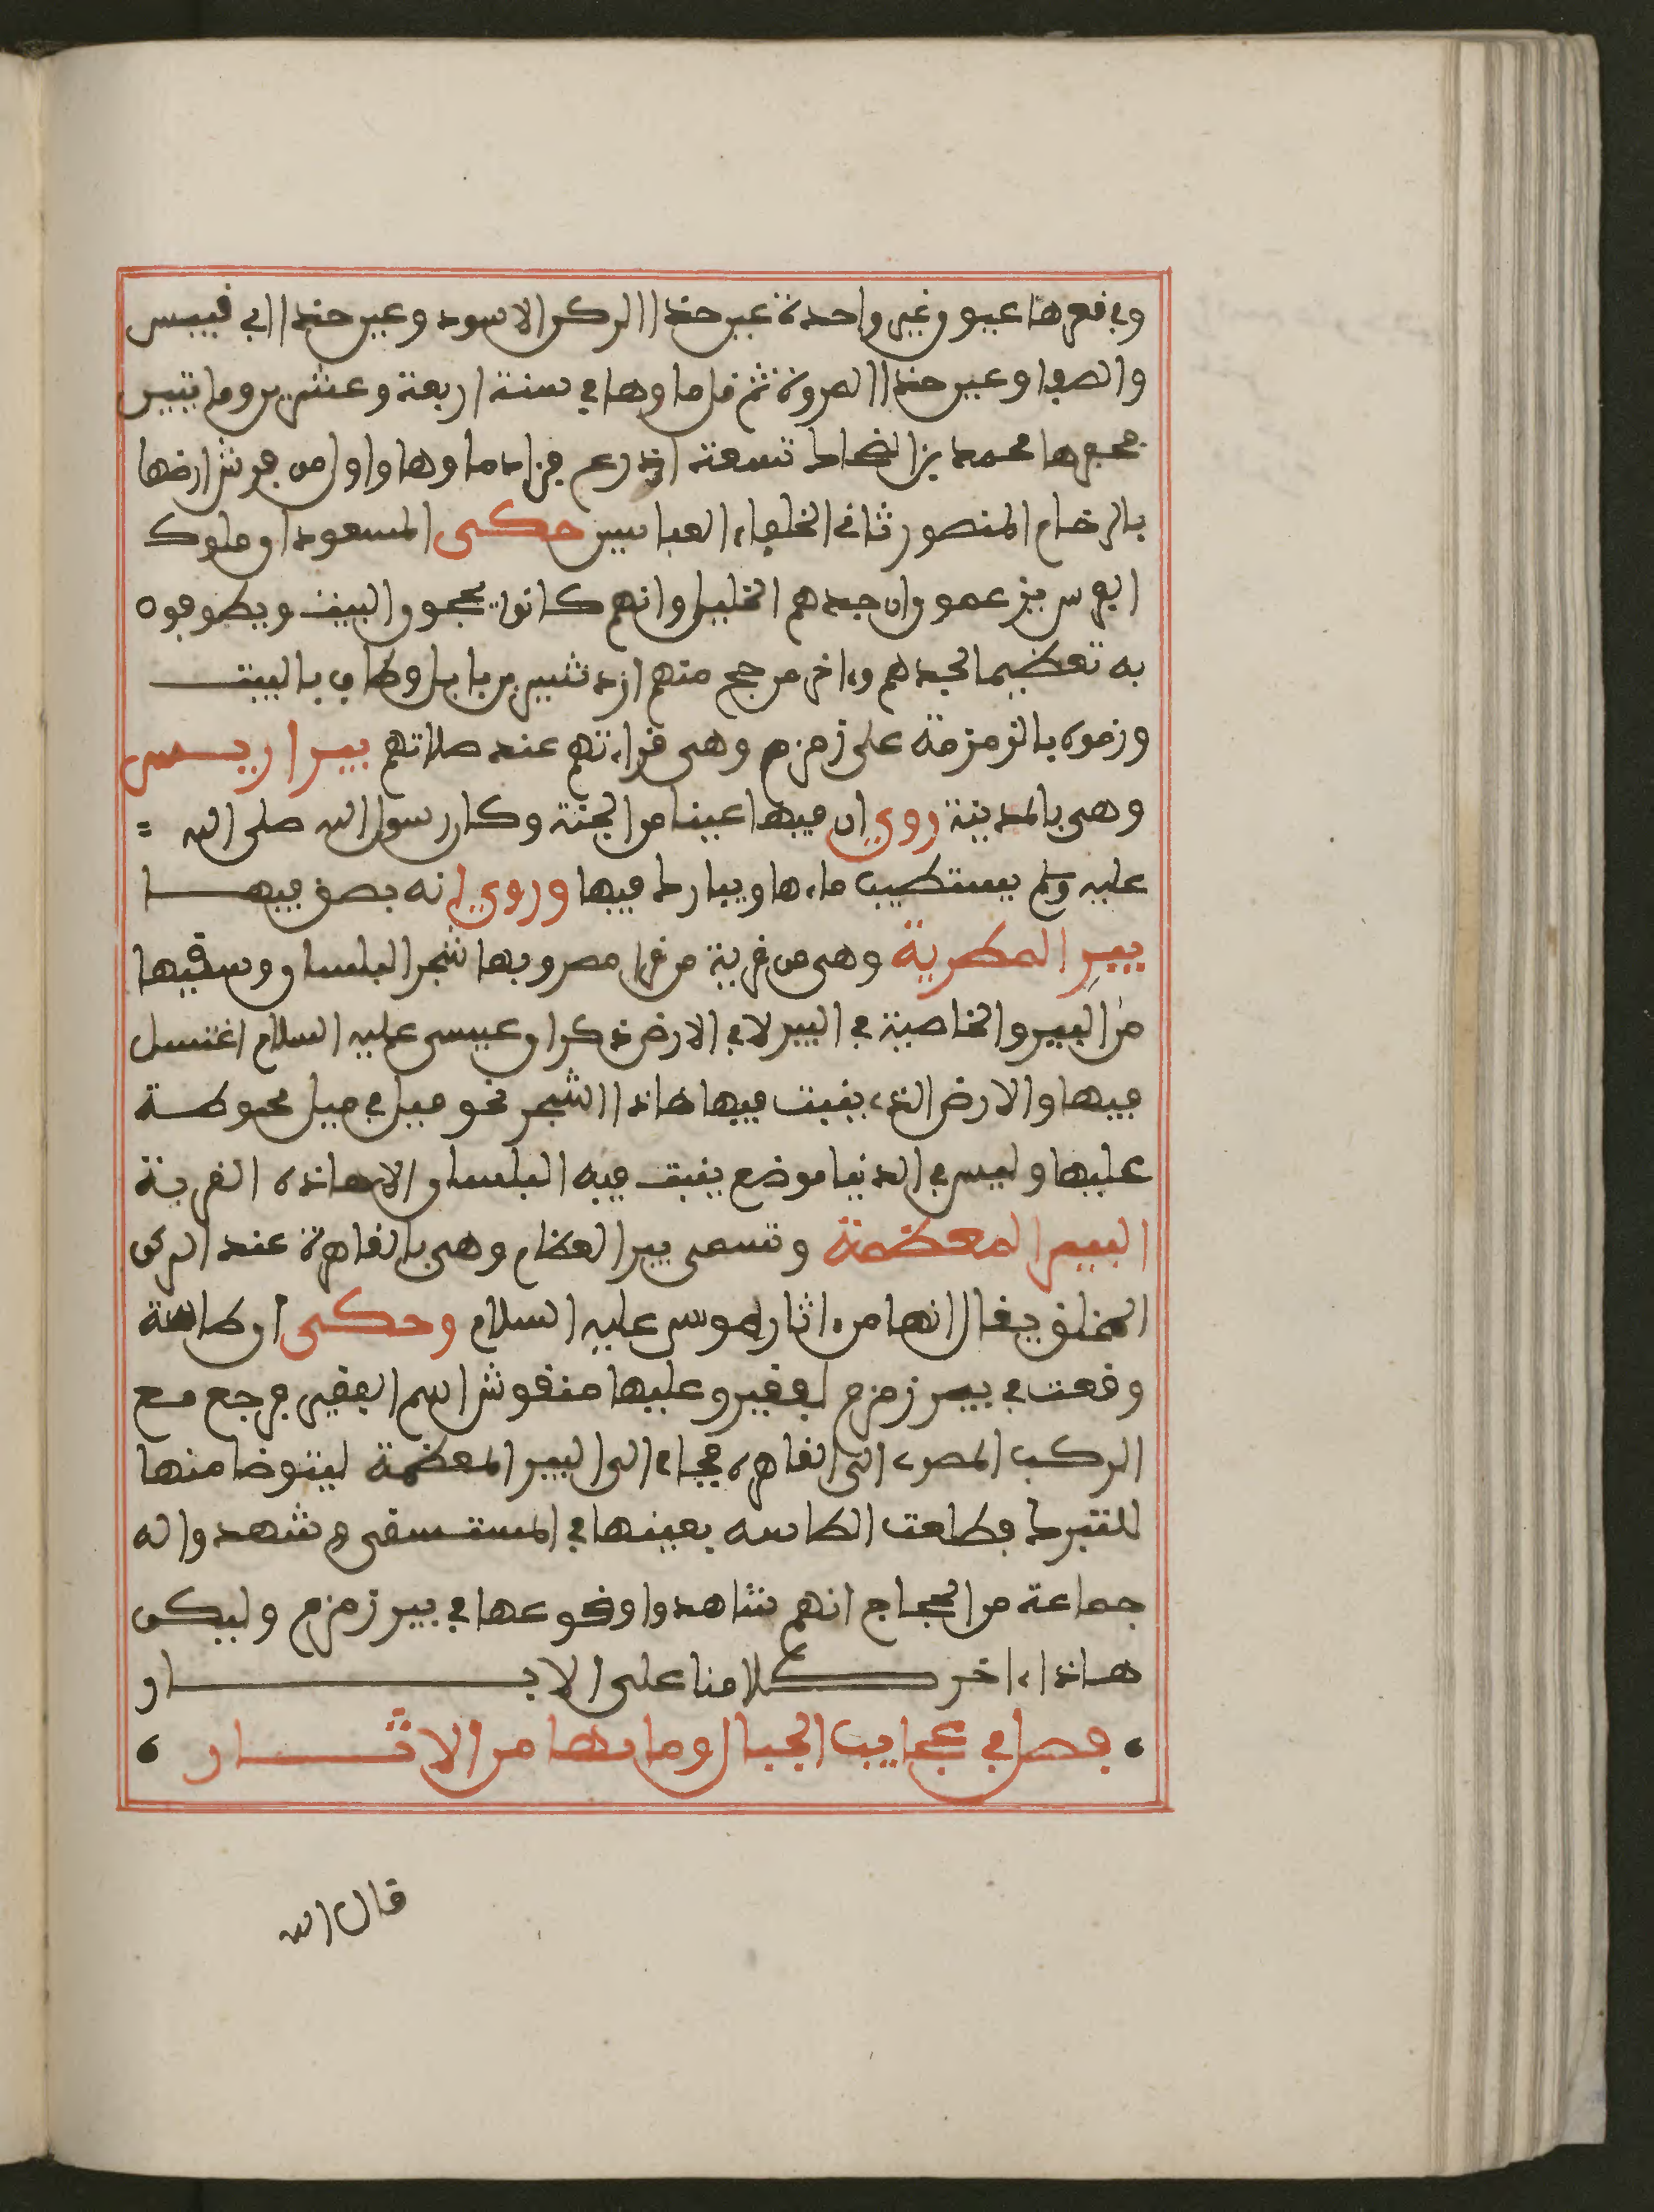 وفي قعرها عيون غير واحدة عين حذا الركن الاسود وعين حذا ابي قبيس
والصفا وعين حذا المروة ثم قل ماوها في سنة اربعة وعشرين وماتين
فحفرها محمد بن الضحاك تسعة اذرع فزاد ماوها واول من فرش ارضها
بالرخام المنصور ثاني الخلفاء العباسيين حكى المسعود ان ملوك
الفرس يزعمون ان جدهم الخليل وانهم كانوا يحجون البيت ويطوفون
به تعظيما لجدهم وءاخر من حج منهم ازدشير بن بابل وطاف بالبيت
وزمزم بالزمزمة على زمزم وهى قراءتهم عند صلاتهم بير اريس
وهى بالمدينة روي ان فيها عينا من الجنة وكان رسول الله صلى الله =
عليه وسلم يستطيب ماءها ويبارك فيها وروي انه بصق فيها
بيرِ المطرية وهى من قرية من قرى مصر وبها شجر البلسان وسقيها
من البير والخاصية في البير لا في الارض ذكر ان عيسى عليه السلام اغتسل
فيها والارض الذي ينبت فيها هاذا الشجر نحو ميل في ميل محوطة
عليها وليس في الدنيا موضع ينبت فيه البلسان الا هاذه القرية
البير المعظمة وتسمى بير العظام وهى بالقاهرة عند الركن
المخلق يقال انها من ءاثار موسى عليه السلام وحكى ان طاسة
وقعت في بير زمزم لفقير وعليها منقوش اسم الفقير فرجع مع
الركب المصري الى القاهرة فجاء الى البير المعظمة ليتوضا منها
للتبرك فطلعت الطاسه بعينها في المستسقى وشهدوا له
جماعة من الحجاج انهم شاهدوا وقوعها في بير زمزم وليكن
هاذا ءاخر كلامنا على الابار
فصل في عجايب الجبال وما بها من الاثار
قال الله